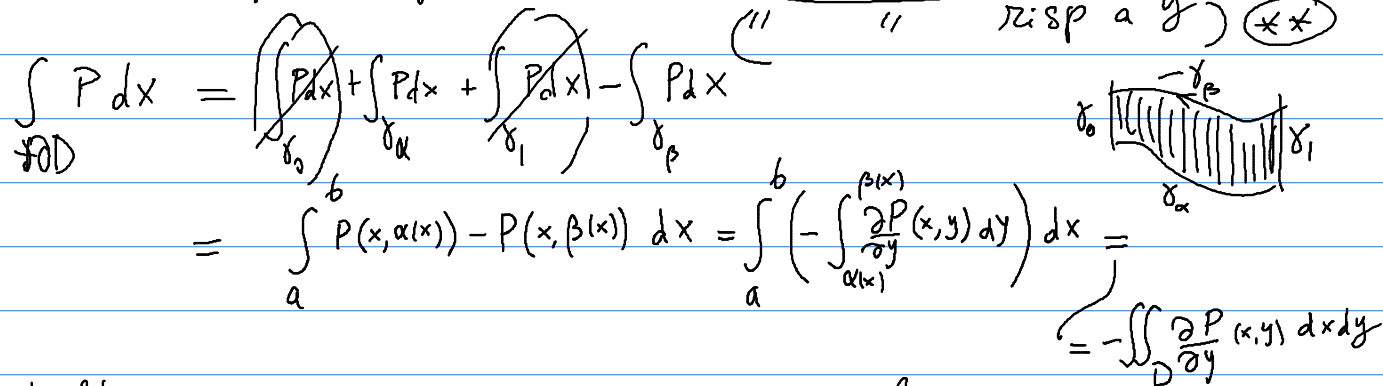 (" " risp a y) (**)
∫_{+∂D} P dx = ∫_{γ_0} Pdx + ∫_{γ_α} Pdx + ∫_{γ_1} Pdx - ∫_{γ_β} Pdx
-γ_β
γ_0 γ_1
γ_α
= ∫_a^b P(x, α(x)) - P(x, β(x)) dx = ∫_a^b ( - ∫_{α(x)}^{β(x)} ∂P/∂y (x,y) dy ) dx =
= - ∬_D ∂P/∂y (x,y) dxdy